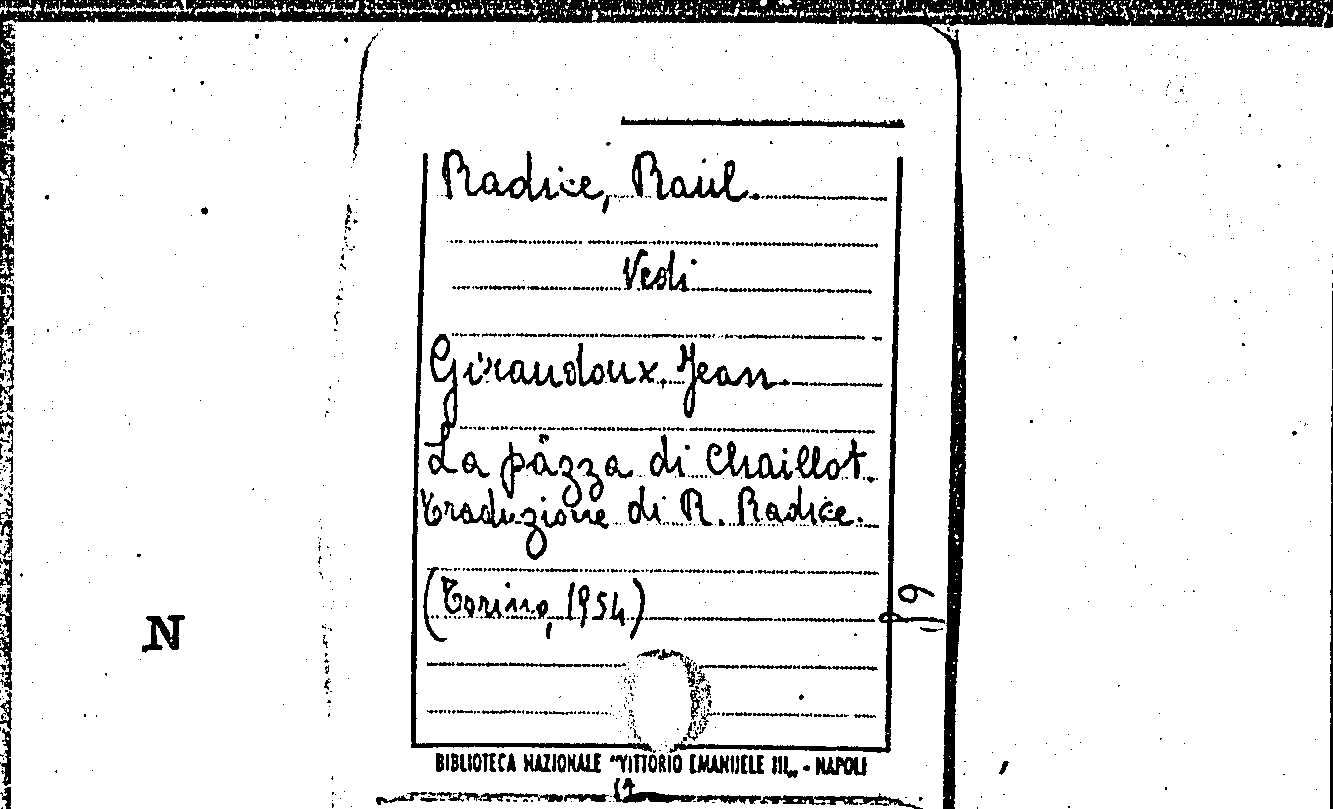 Radice, Raul.
Vedi
Giraudoux, Jean.
La pazza di Chaillot.
Traduzione di R. Radice.
(Torino, 1954)
N
BIBLIOTECA NAZIONALE "VITTORIO EMANUELE III„ - NAPOLI